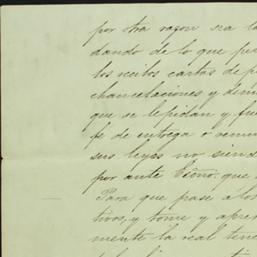 por otra razon sea la
dando de lo que per
los recibos cartas de p
chancelaciones y dem
que se le pidan y fue
fe de entrega ó renun
sus leyes no siend
por ante Esño. que
Para que pase a los
tivos, y tome y apre
mente la real tene